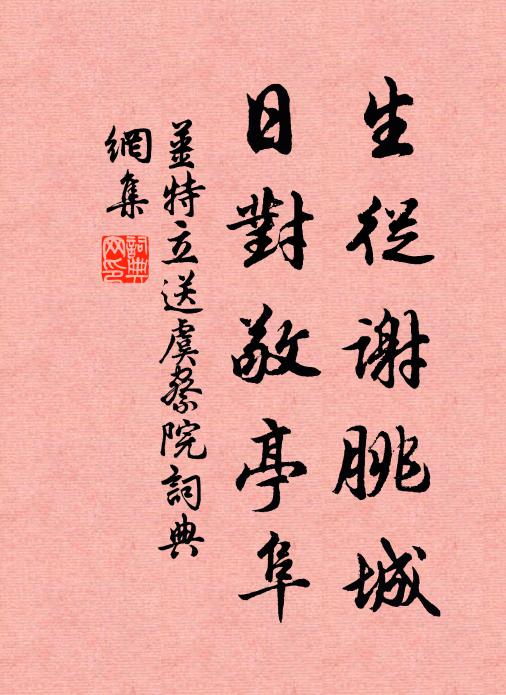 生從謝朓城
日對敬亭阜
薑特立送虞察院詞典
網集
詞典
网印